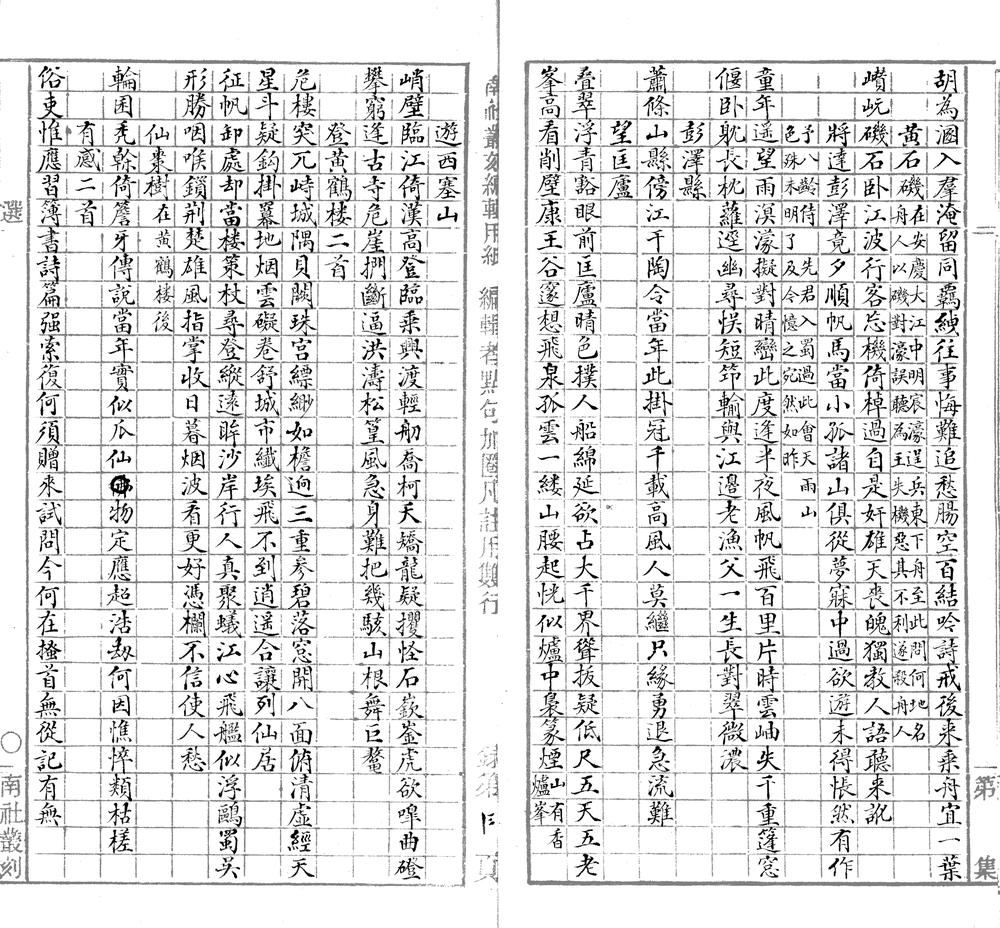 第　集
胡為溷入羣淹留同羈紲往事悔難追愁腸空百結吟詩戒後來乘舟宜一葉
黃石磯在安慶大江中明宸濠逞兵東下舟至此問何地名
舟人以磯對濠誤聽為王失機惡其不利遂殺舟人
巑岏磯石卧江波行客忘機倚棹過自是奸雄天喪魄獨教人語聽來訛
將達彭澤竟夕順帆馬當小孤諸山俱從夢寐中過欲遊未得悵然有作
予八齡侍先君入蜀過此會天雨山
色殊未明了及今憶之宛然如昨
童年遥望雨溟濛擬對晴巒此度逢半夜風帆飛百里片時雲岫失千重篷窓
偃卧躭長枕蘿逕幽尋悮短筇輸與江邊老漁父一生長對翠微濃
彭澤縣
蕭條山縣傍江干陶令當年此掛冠千載高風人莫繼只緣勇退急流難
望匡廬
叠翠浮青豁眼前匡廬晴色撲人船綿延欲占大千界聳拔疑低尺五天五老
峯高看削壁康王谷邃想飛泉孤雲一縷山腰起恍似爐中裊篆煙山有香
爐峯
南社叢刻編輯用紙　編輯者點句加圈　附註用雙行　頁
遊西塞山
峭壁臨江倚漢高登臨乘興渡輕舠喬柯夭矯龍疑攫怪石嶔崟虎欲嘷曲磴
攀窮逢古寺危崖捫斷逼洪濤松篁風急身難把幾駭山根舞巨鰲
登黃鶴樓二首
危樓突兀峙城隅貝闕珠宮縹緲如檐迥三重參碧落窓開八面俯清虛經天
星斗疑鈎掛羃地烟雲礙卷舒城市纖埃飛不到逍遥合讓列仙居
征帆卸處却當樓策杖尋登縱遠眸沙岸行人真聚蟻江心飛艦似浮鷗蜀吳
形勝咽喉鎖荆楚雄風指掌收日暮烟波看更好憑欄不信使人愁
仙棗樹在黃鶴樓後
輪囷禿榦倚簷牙傳說當年實似瓜仙物定應超浩刼何因憔悴類枯槎
有感二首
俗吏惟應習簿書詩篇强索復何須贈來試問今何在搔首無從記有無
選　〇　南社叢刻